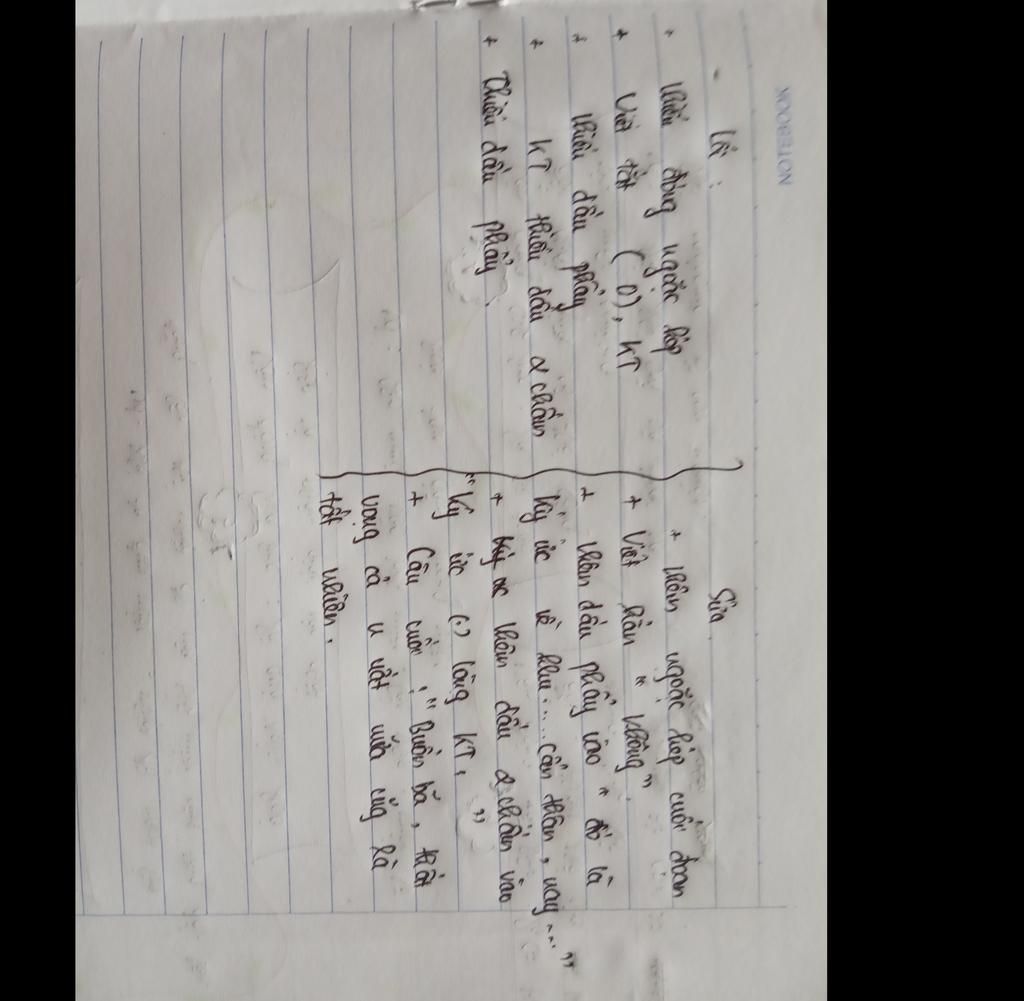 NOTEBOOK
- Lỗi :
+ thiếu đóng ngoặc kép
+ Viết tắt ( 0), KT
+ thiếu dấu phẩy
+ KT thiếu dấu 2 chấm
+ Thiếu dấu phẩy .
Sửa
+ thêm ngoặc kép cuối đoạn
+ Viết hẳn " không "
+ thêm dấu phẩy vào " đó là
ký ức về khu .... cẩn thận , nay ... "
+ thêm dấu 2 chấm vào
" Ký ức (:) lòng KT, "
+ Câu cuối , " Buồn bã , thất
vọng cả n vật nữa cũg là
tất nhiên .